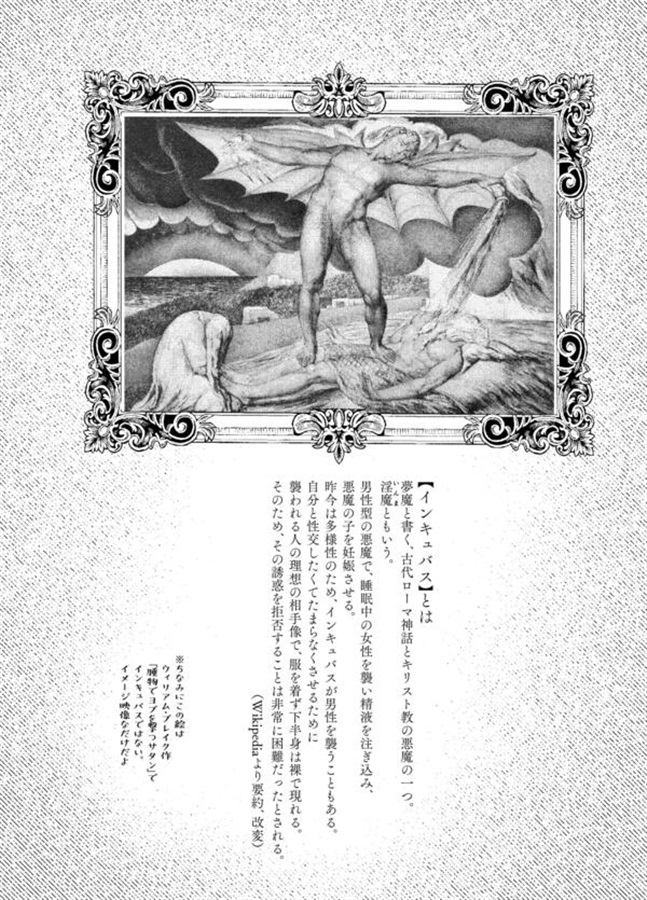 【インキュバス】とは
夢魔と書く、古代ローマ神話とキリスト教の悪魔の一つ。
淫魔ともいう。
いんま
男性型の悪魔で、睡眠中の女性を襲い精液を注ぎ込み、
悪魔の子を妊娠させる。
昨今は多様性のため、インキュバスが男性を襲うこともある。
自分と性交したくてたまらなくさせるために
襲われる人の理想の相手像で、服を着ず下半身は裸で現れる。
そのため、その誘惑を拒否することは非常に困難だったとされる。
(Wikipediaより要約、改変)
※ちなみにこの絵は
ウィリアム・ブレイク作
「腫物でヨブを撃つサタン」で
インキュバスではない。
イメージ映像なだけだよ